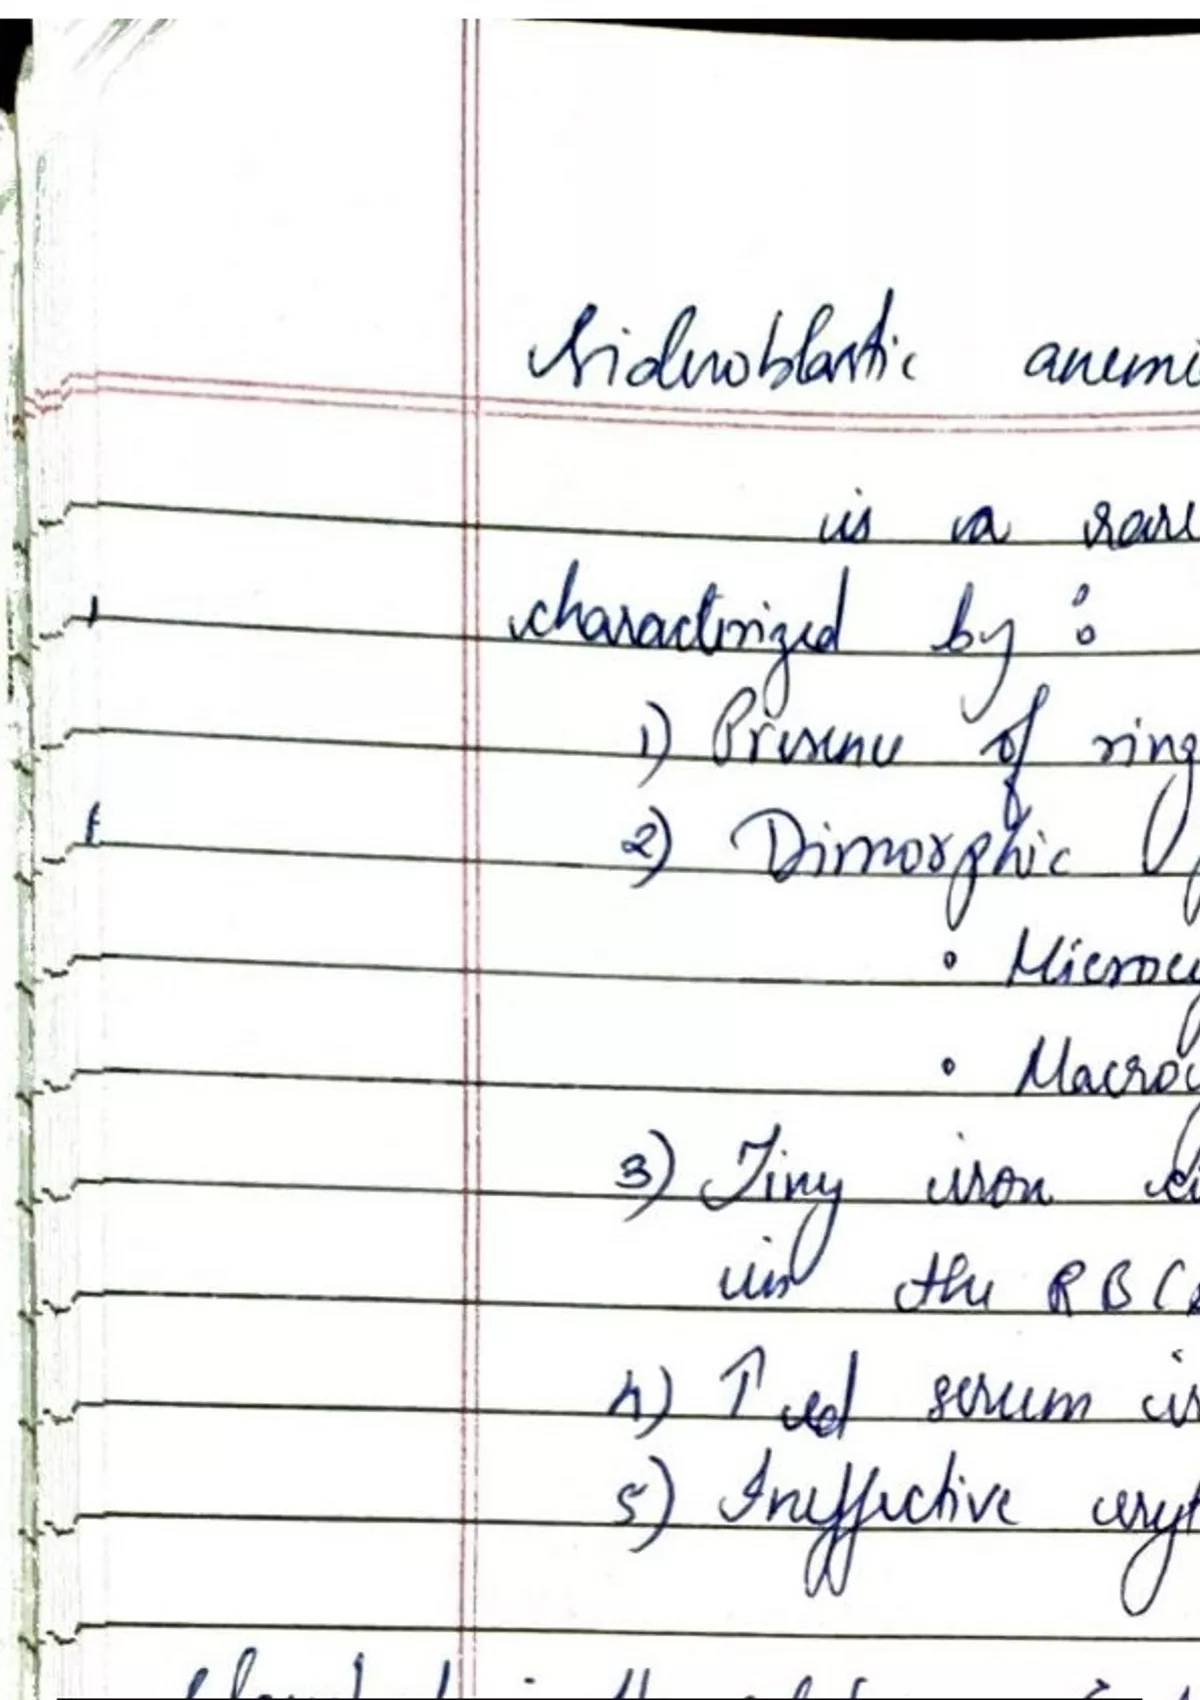 Sideroblastic anemi
is a rare
characterized by :
1) Presence of ring
2) Dimorphic
• Microcy
• Macrocy
3) Tiny iron
in the RBCs
4) ↑ed serum ir
5) Ineffective eryt